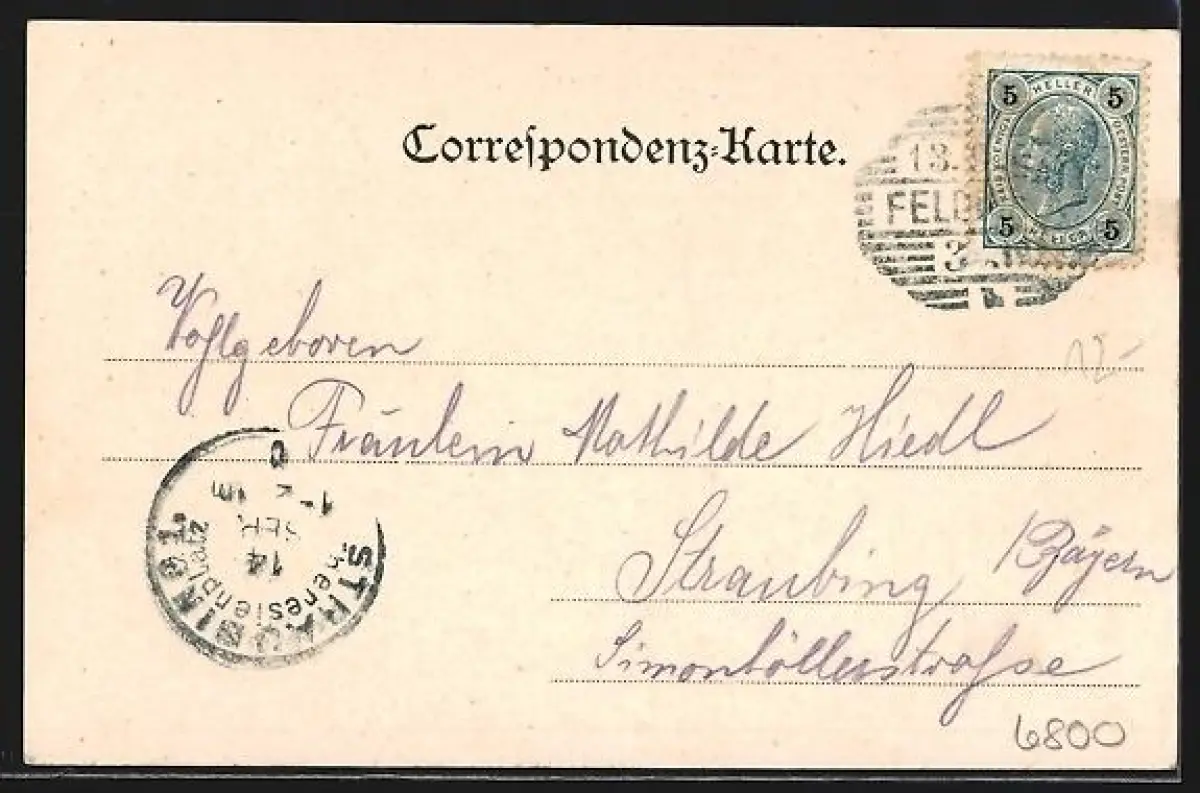 Correspondenz-Karte.
5 HELLER 5
5 HELLER 5
13.
FELD
3
Wohlgeboren
12-
Fräulein Mathilde Hiedl
Straubing /Bayern
Simonhöllerstraße
STRAUBING 1.
Theresienplatz
14
SEP.
6800